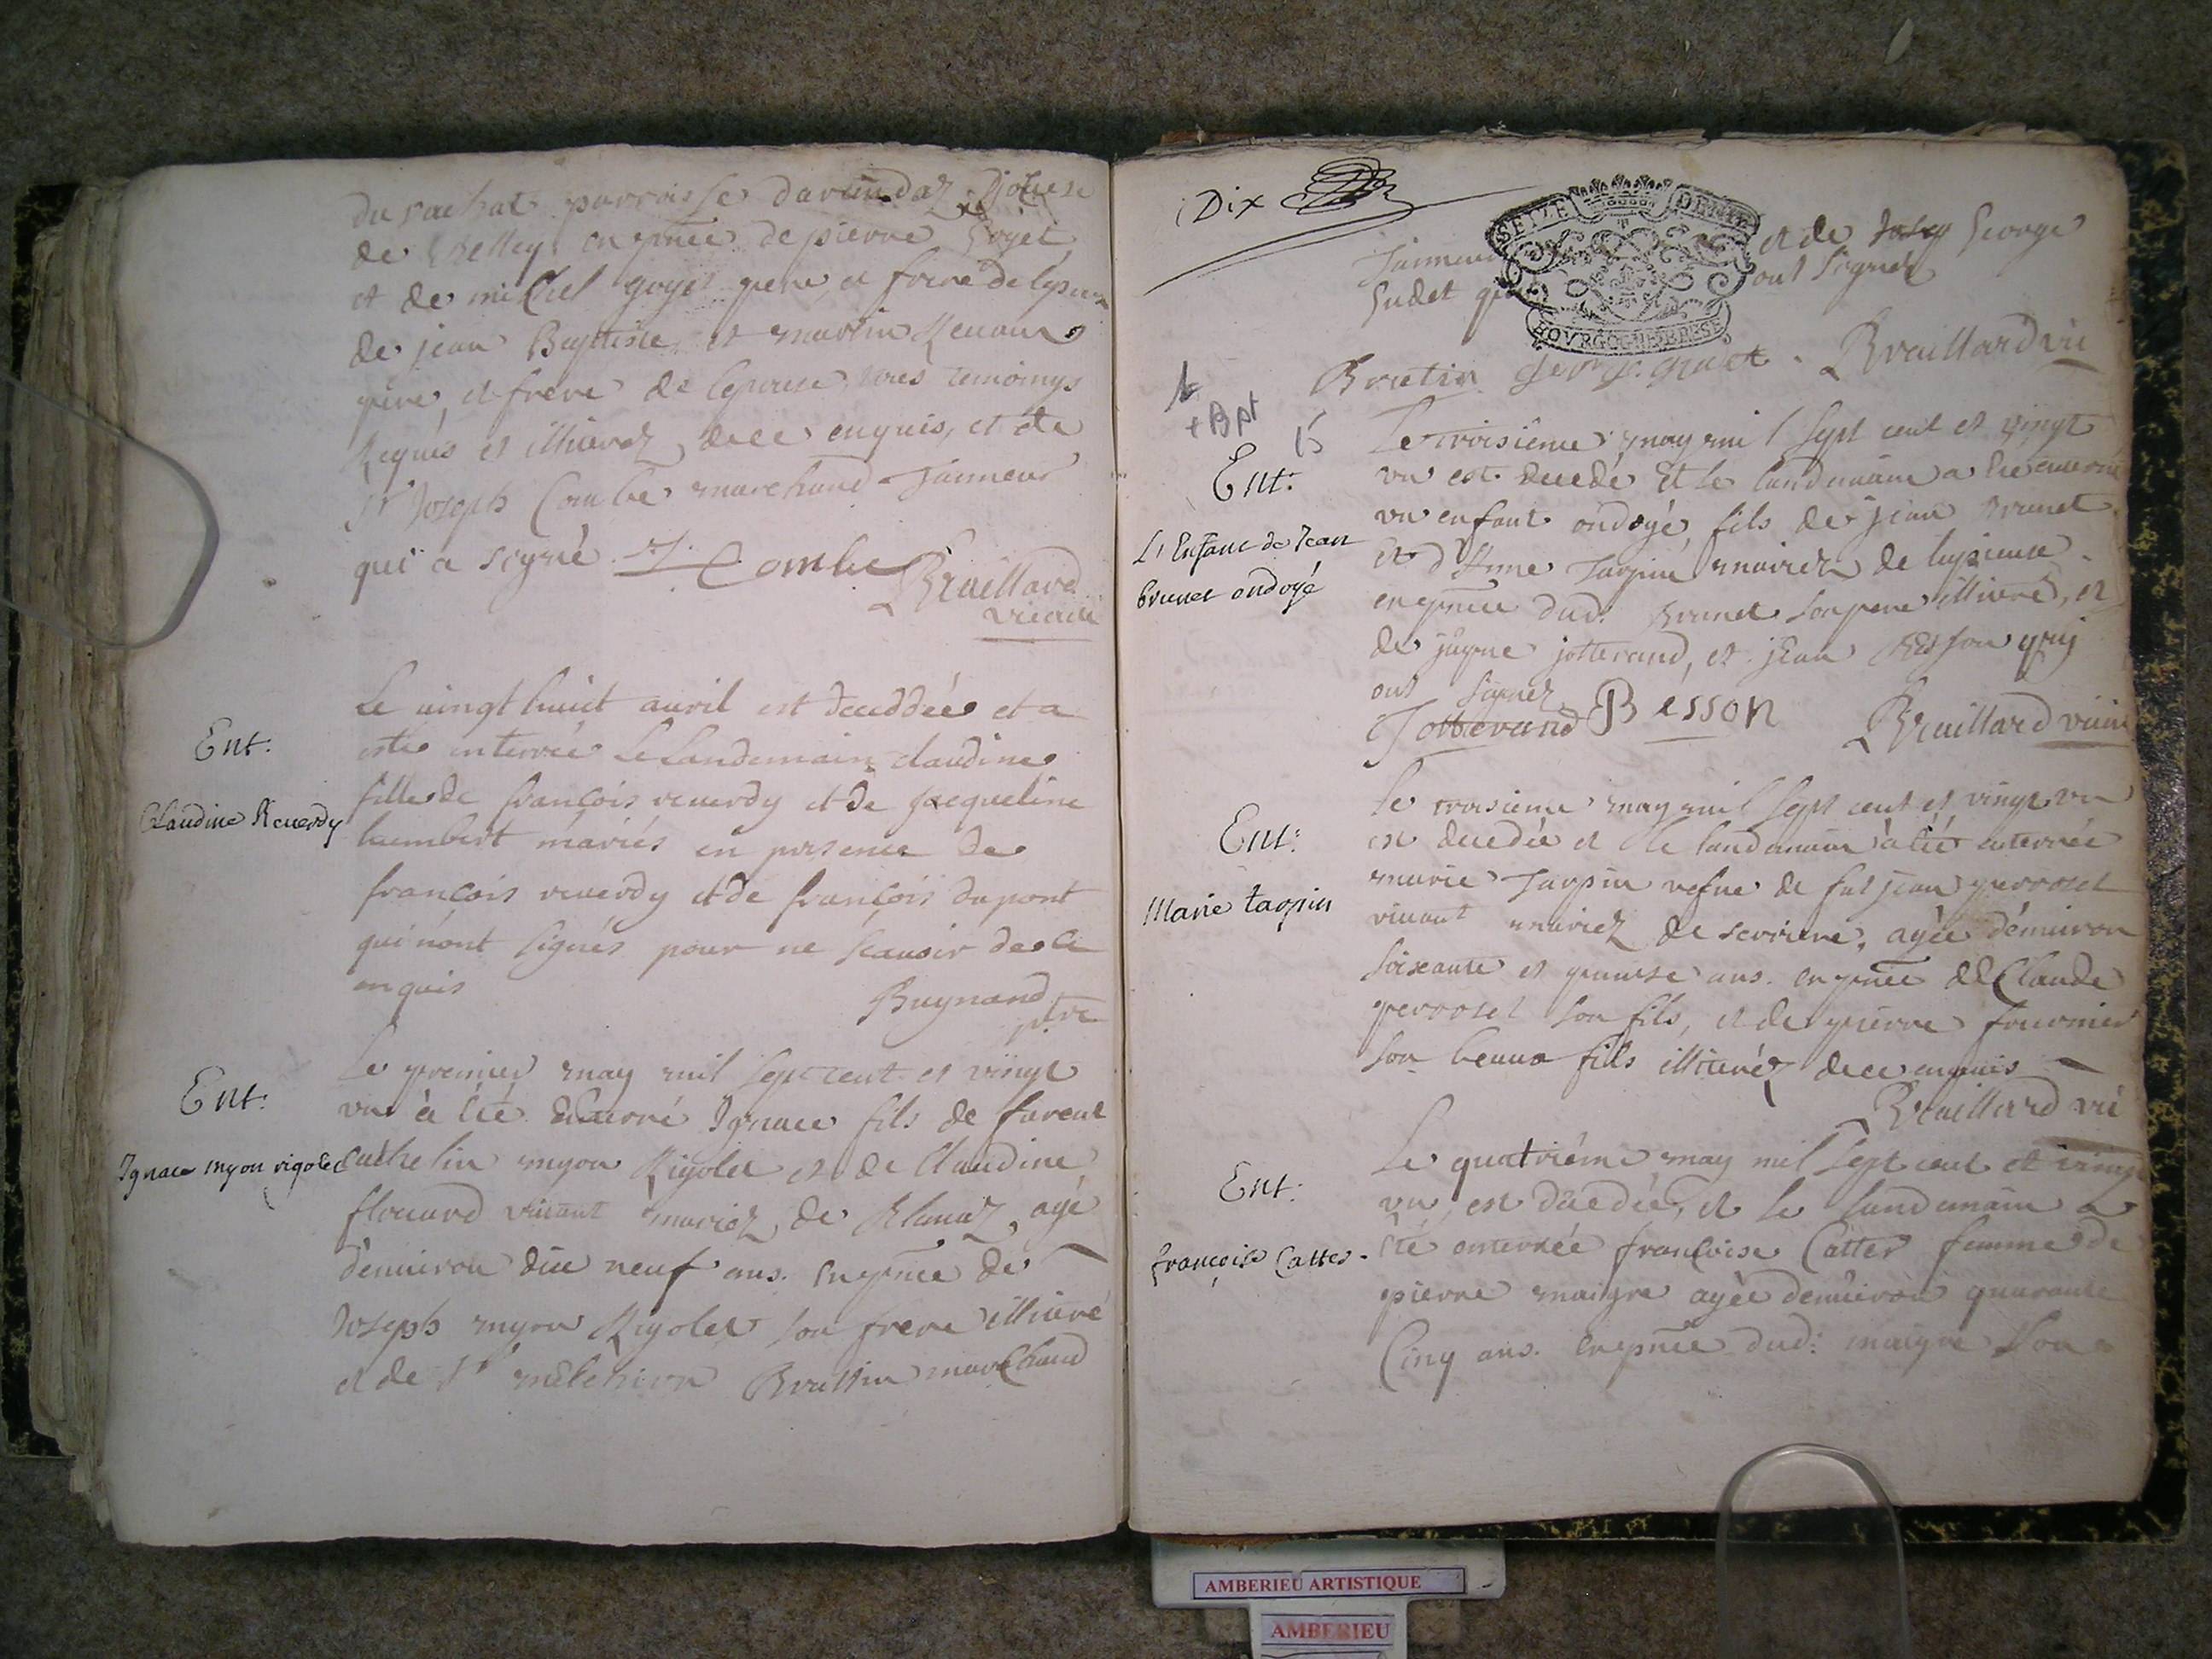 du rachat parroisse
de Belley en pñce de pierre Goyet
et de michel goyet pere et frere de lepoux
de jean Baptiste et martin Renaux
pere, et frere de lepouse tous temoings
Requis et illiterez, de ce enquis, et de
Sr Joseph Combe marchand Tanneur
qui a signé J. Combe
Braillard
vicaire
Ent:
Claudine Reverdy
Le vingt huict avril est deceddée et a
esté enterrée le landemain claudine
fille de françois reverdy et de jacqueline
humbert mariés en presence de
françois reverdy et de françois dupont
qui n'ont signés pour ne scavoir de ce
enquis
Buynand
ptre
Ent:
Ignace myon rigolet
Le premier may mil sept cent et vingt
vn à été enterré Ignace fils de
myon Rigolet et de Claudine
vivant mariez, de agé
d'environ dix neuf ans. en pñce de
Joseph myon Rigolet son frere illiteré
et de Sr melchior Brattin marchand
Dix
SEIZE DENIE
BOVRGOGNE BRESSE
Tanneur et de George
Gudet qui ont signez
Bratin George gudet Braillard vic
+ Bpt
Ent:
L'Enfant de Jean
brunet ondoyé
Le troisieme may mil sept cent et vingt
vn est decedé Et le landemain a été enterré
vn enfant ondoyé, fils de jean brunet
et d'Anne Tarpin mariez de
en pñce dud: Brunet son pere illiteré, et
de jotterand, et jean Besson quj
ont signez
Jotterand Besson Braillard vicaire
Ent:
Marie tarpin
Le troisieme may mil sept cent et vingt vn
est decedée et le landemain à été enterrée
marie Tarpin vefve de fut jean perroset
vivant mariez de serriere, agée d'environ
soixante et quinse ans. en pñce de Claude
perroset son fils, et de pierre fournier
son beaux fils illiterez de ce enquis
Braillard vic
Ent:
françoise Cattes
Le quatriéme may mil sept cent et vingt
vn, est decedée, et le landemain a
été enterrée françoise Catter femme de
pierre maigre agée denviron quarante
Cinq ans. en pñce dud: maigre son
AMBERIEU ARTISTIQUE
AMBERIEU